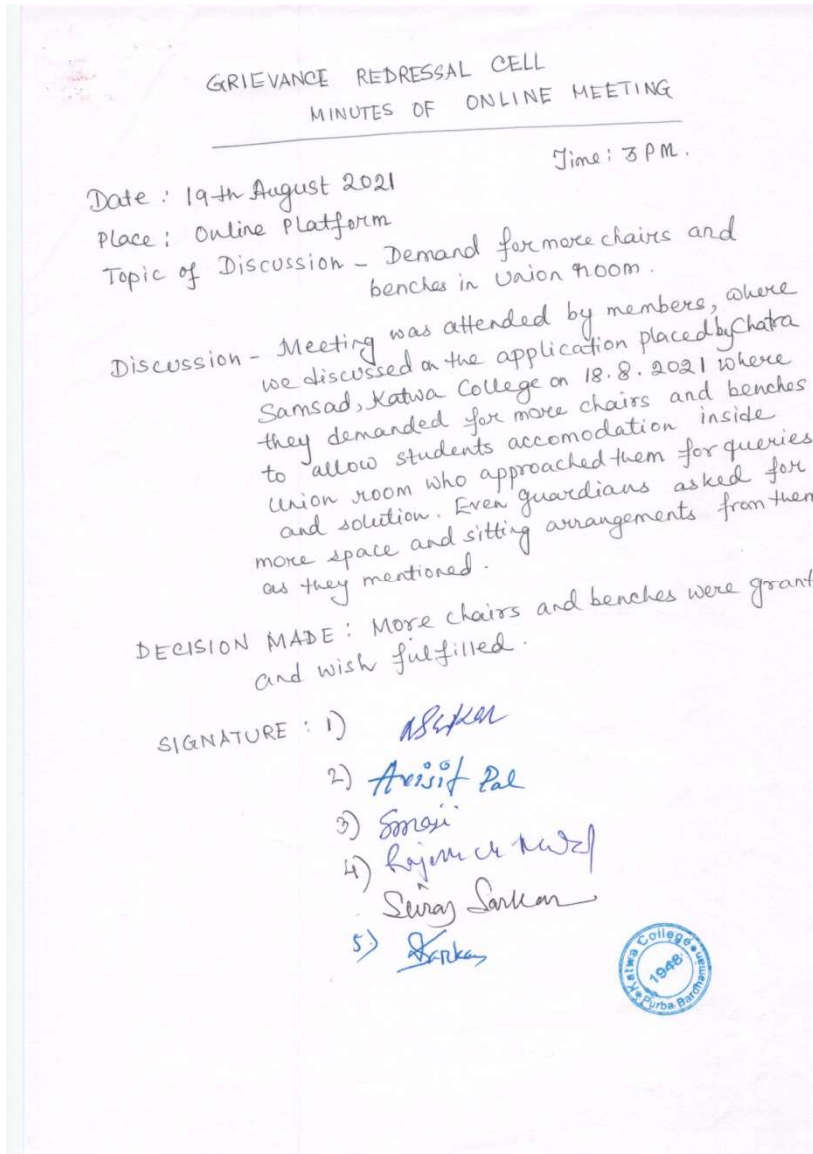 GRIEVANCE REDRESSAL CELL
MINUTES OF ONLINE MEETING
Time: 3 PM.
Date: 19th August 2021
Place: Online Platform
Topic of Discussion - Demand for more chairs and
benches in Union room.
Discussion - Meeting was attended by members, where
we discussed on the application placed by Chatra
Samsad, Katwa College on 18.8.2021 where
they demanded for more chairs and benches
to allow students accomodation inside
Union room who approached them for queries
and solution. Even guardians asked for
more space and sitting arrangements from them
as they mentioned.
DECISION MADE: More chairs and benches were grant
and wish fulfilled.
SIGNATURE: 1)
2) Avisit Pal
3)
4)
Suraj Sarkar
5) Sarkar
Katwa College
1948
Purba Bardhaman